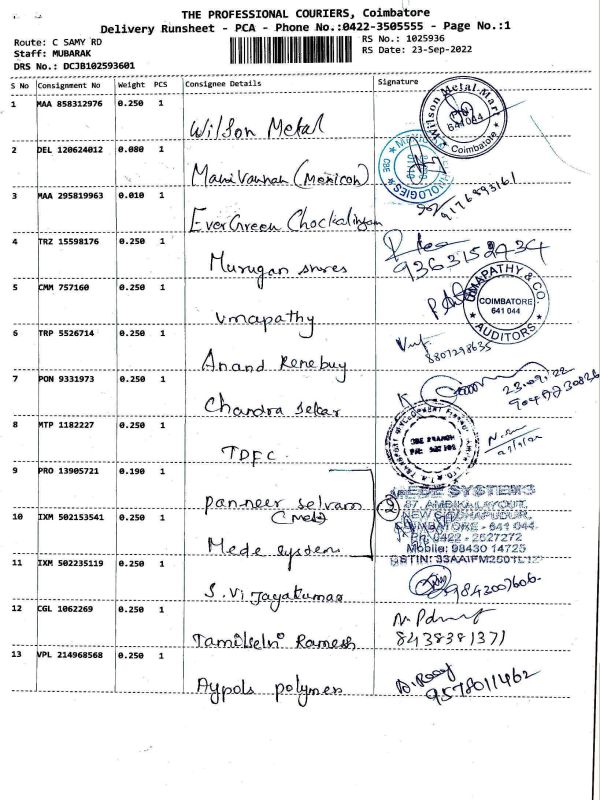 THE PROFESSIONAL COURIERS, Coimbatore
Delivery Runsheet - PCA - Phone No.:0422-3505555 - Page No.:1
Route: C SAMY RD
RS No.: 1025936
Staff: MUBARAK
RS Date: 23-Sep-2022
DRS No.: DCJB102593601
S No Consignment No Weight PCS Consignee Details Signature
1 MAA 858312976 0.250 1
Wilson Metal
Wilson Metal Mart
641 044
Coimbatore
2 DEL 120624012 0.080 1
Manivannan (Mexicon)
3 MAA 295819963 0.010 1
EverGreen Chockalingam
9176893161
4 TRZ 15598176 0.250 1
Murugan stores
9363152434
5 CMM 757160 0.250 1
Umapathy
UMAPATHY & CO.
COIMBATORE
641 044
AUDITORS
6 TRP 5526714 0.250 1
Anand Renebuy
8807298635
7 PON 9331973 0.250 1
Chandra Sekar
23.09.22
8 MTP 1182227 0.250 1
TDFC
9 PRO 13905721 0.190 1
panneer selvam
(Mede)
10 IXM 502153541 0.250 1
Mede system
MEDE SYSTEMS
87, AMBIKA LAYOUT,
NEW SIDDHAPUDUR,
COIMBATORE - 641 044.
Ph: 0422 - 2627272
Mobile: 98430 14725
11 IXM 502235119 0.250 1
S. Vijayakumar
9843007606
12 CGL 1062269 0.250 1
Tamilselvi Ramesh
8438381371
13 VPL 214968568 0.250 1
Aypols polymers
9578011462